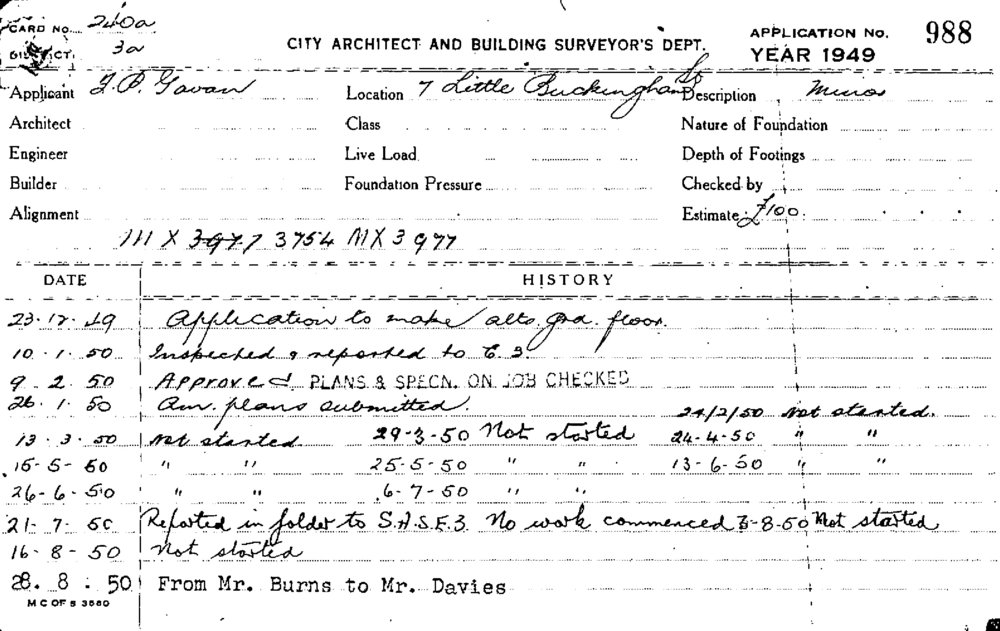 CARD NO. 240a
DISTRICT. 3a
CITY ARCHITECT AND BUILDING SURVEYOR'S DEPT.
APPLICATION NO. 988
YEAR 1949
Applicant J. P. Gavan Location 7 Little Buckingham St Description Minor
Architect Class Nature of Foundation
Engineer Live Load Depth of Footings
Builder Foundation Pressure Checked by
Alignment Estimate £100
MX 3977 3754 MX 3977
DATE HISTORY
23.12.49 Application to make alts. grd. floor.
10.1.50 Inspected & reported to C.S.
9.2.50 Approved PLANS & SPECN. ON JOB CHECKED
26.1.50 Am. plans submitted. 24/2/50 not started.
13.3.50 not started 29-3-50 Not started 24-4-50 " "
15-5-50 " " 25-5-50 " " 13-6-50 " "
26-6-50 " " 6-7-50 " "
21-7-50 Reported in folder to S.A.S.E.3. No work commenced 3-8-50 Not started
16-8-50 Not started
28.8.50 From Mr. Burns to Mr. Davies
M C OF S 3560